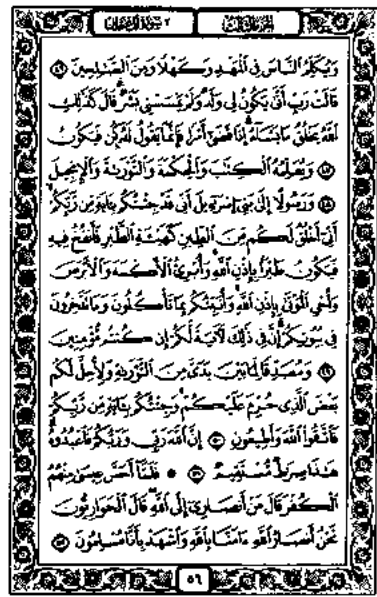 الجزء الثالث
٣ سورة آل عمران
وَيُكَلِّمُ النَّاسَ فِي الْمَهْدِ وَكَهْلًا وَمِنَ الصَّالِحِينَ ٤٦
قَالَتْ رَبِّ أَنَّى يَكُونُ لِي وَلَدٌ وَلَمْ يَمْسَسْنِي بَشَرٌ قَالَ كَذَلِكِ
اللَّهُ يَخْلُقُ مَا يَشَاءُ إِذَا قَضَى أَمْرًا فَإِنَّمَا يَقُولُ لَهُ كُنْ فَيَكُونُ
٤٧ وَيُعَلِّمُهُ الْكِتَابَ وَالْحِكْمَةَ وَالتَّوْرَاةَ وَالْإِنْجِيلَ
٤٨ وَرَسُولًا إِلَى بَنِي إِسْرَائِيلَ أَنِّي قَدْ جِئْتُكُمْ بِآيَةٍ مِنْ رَبِّكُمْ
أَنِّي أَخْلُقُ لَكُمْ مِنَ الطِّينِ كَهَيْئَةِ الطَّيْرِ فَأَنْفُخُ فِيهِ
فَيَكُونُ طَيْرًا بِإِذْنِ اللَّهِ وَأُبْرِئُ الْأَكْمَهَ وَالْأَبْرَصَ
وَأُحْيِي الْمَوْتَى بِإِذْنِ اللَّهِ وَأُنَبِّئُكُمْ بِمَا تَأْكُلُونَ وَمَا تَدَّخِرُونَ
فِي بُيُوتِكُمْ إِنَّ فِي ذَلِكَ لَآيَةً لَكُمْ إِنْ كُنْتُمْ مُؤْمِنِينَ
٤٩ وَمُصَدِّقًا لِمَا بَيْنَ يَدَيَّ مِنَ التَّوْرَاةِ وَلِأُحِلَّ لَكُمْ
بَعْضَ الَّذِي حُرِّمَ عَلَيْكُمْ وَجِئْتُكُمْ بِآيَةٍ مِنْ رَبِّكُمْ
فَاتَّقُوا اللَّهَ وَأَطِيعُونِ ٥٠ إِنَّ اللَّهَ رَبِّي وَرَبُّكُمْ فَاعْبُدُوهُ
هَذَا صِرَاطٌ مُسْتَقِيمٌ ٥١ ۞ فَلَمَّا أَحَسَّ عِيسَى مِنْهُمُ
الْكُفْرَ قَالَ مَنْ أَنْصَارِي إِلَى اللَّهِ قَالَ الْحَوَارِيُّونَ
نَحْنُ أَنْصَارُ اللَّهِ آمَنَّا بِاللَّهِ وَاشْهَدْ بِأَنَّا مُسْلِمُونَ ٥٢
٥٦